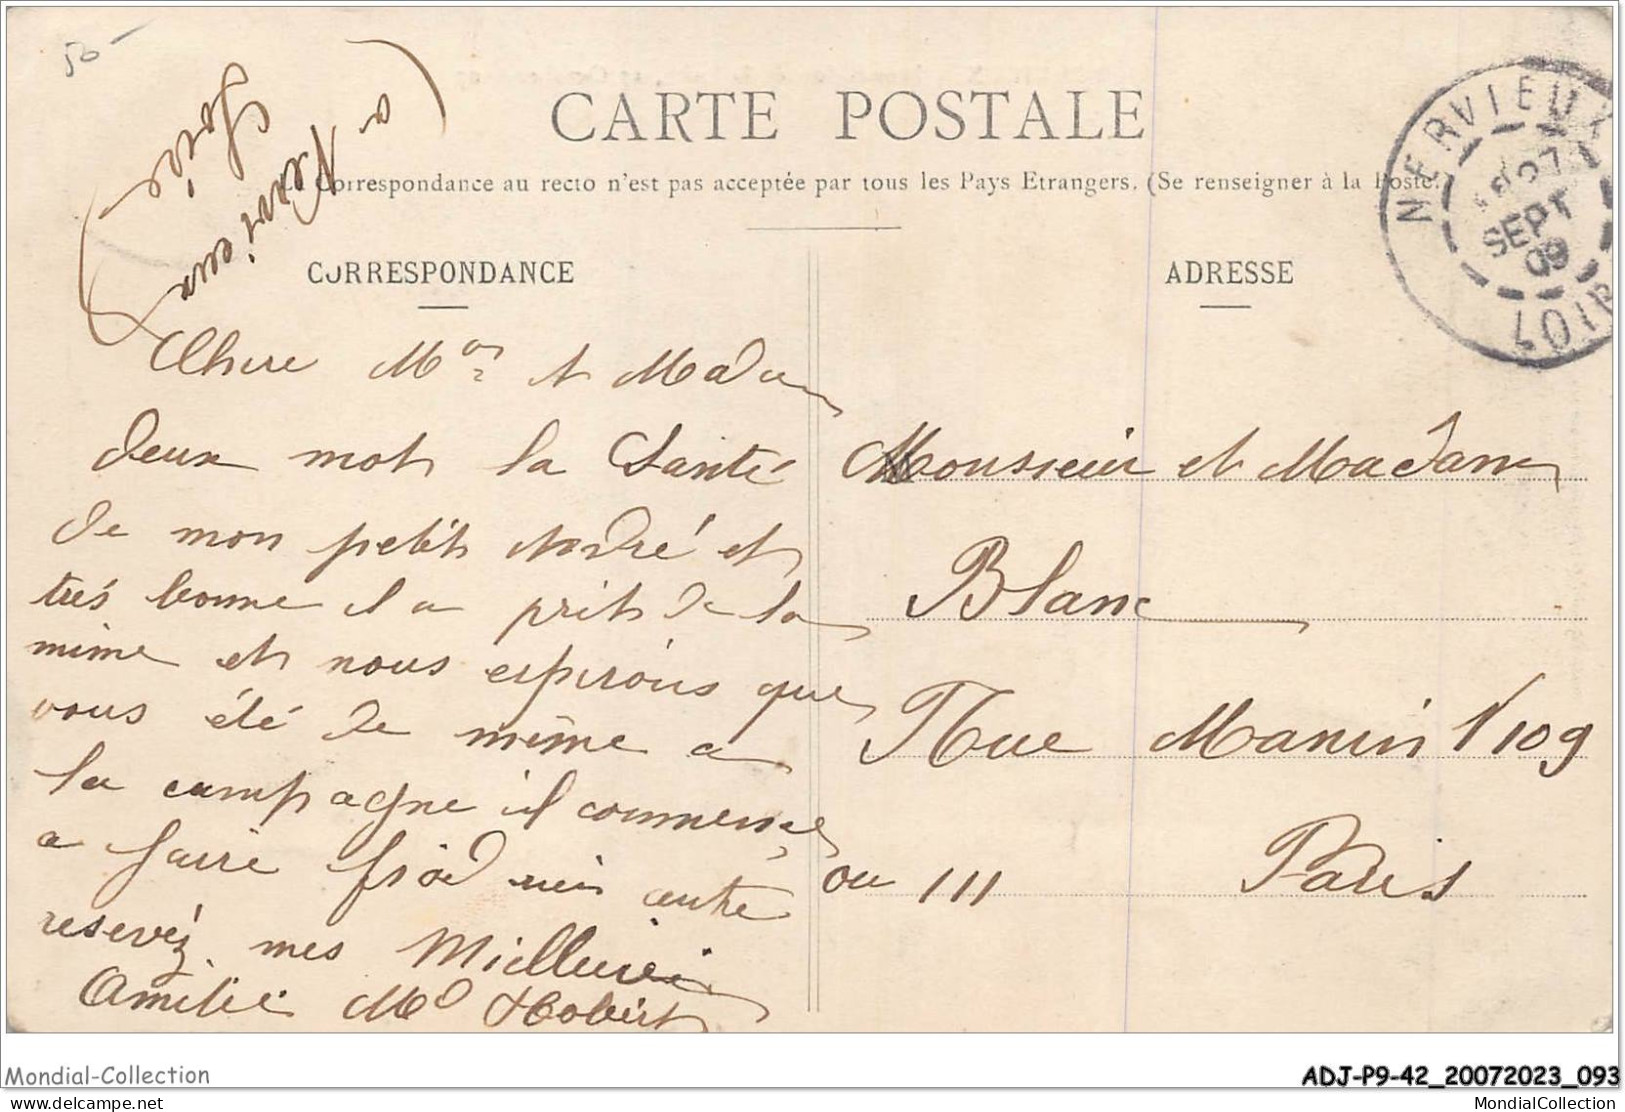 50-
CARTE POSTALE
La Correspondance au recto n'est pas acceptée par tous les Pays Etrangers. (Se renseigner à la Poste.)
a Nervieux
Loire
NERVIEUX
27
SEPT
09
LOIRE
CORRESPONDANCE
Chere Mr et Madam
deux mot la Santé
de mon petit André et
très bonne il a prit de la
mime et nous espérons que
vous été de même a
la campagne il commence
a faire froid rien autre
resevéz mes Mielleures
Amitié Md Hobert
ADRESSE
Monsieur et Madame
Blanc
Rue Manin 109
ou 111 Paris
Mondial-Collection
ADJ-P9-42_20072023_093
mondialcollection.delcampe.net
MondialCollection